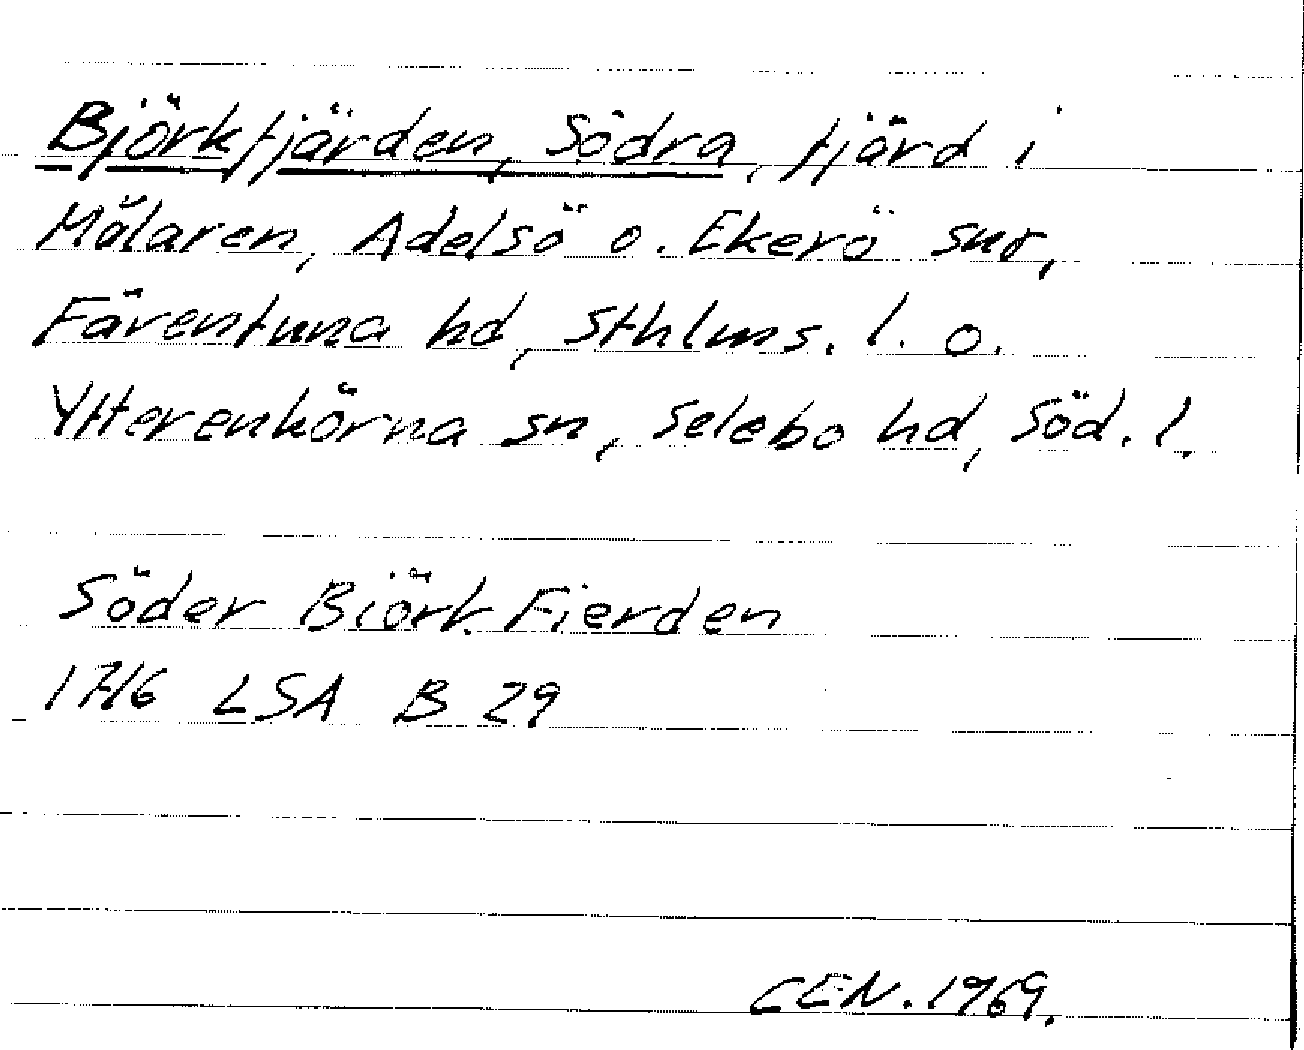 Björkfjärden, Södra, fjärd i
Mälaren, Adelsö o. Ekerö snr,
Färentuna hd, Sthlms. l. o.
Ytterenhörna sn, Selebo hd, Söd. l.
Söder Biörk Fierden
1716 LSA B 29
CEN. 1969.